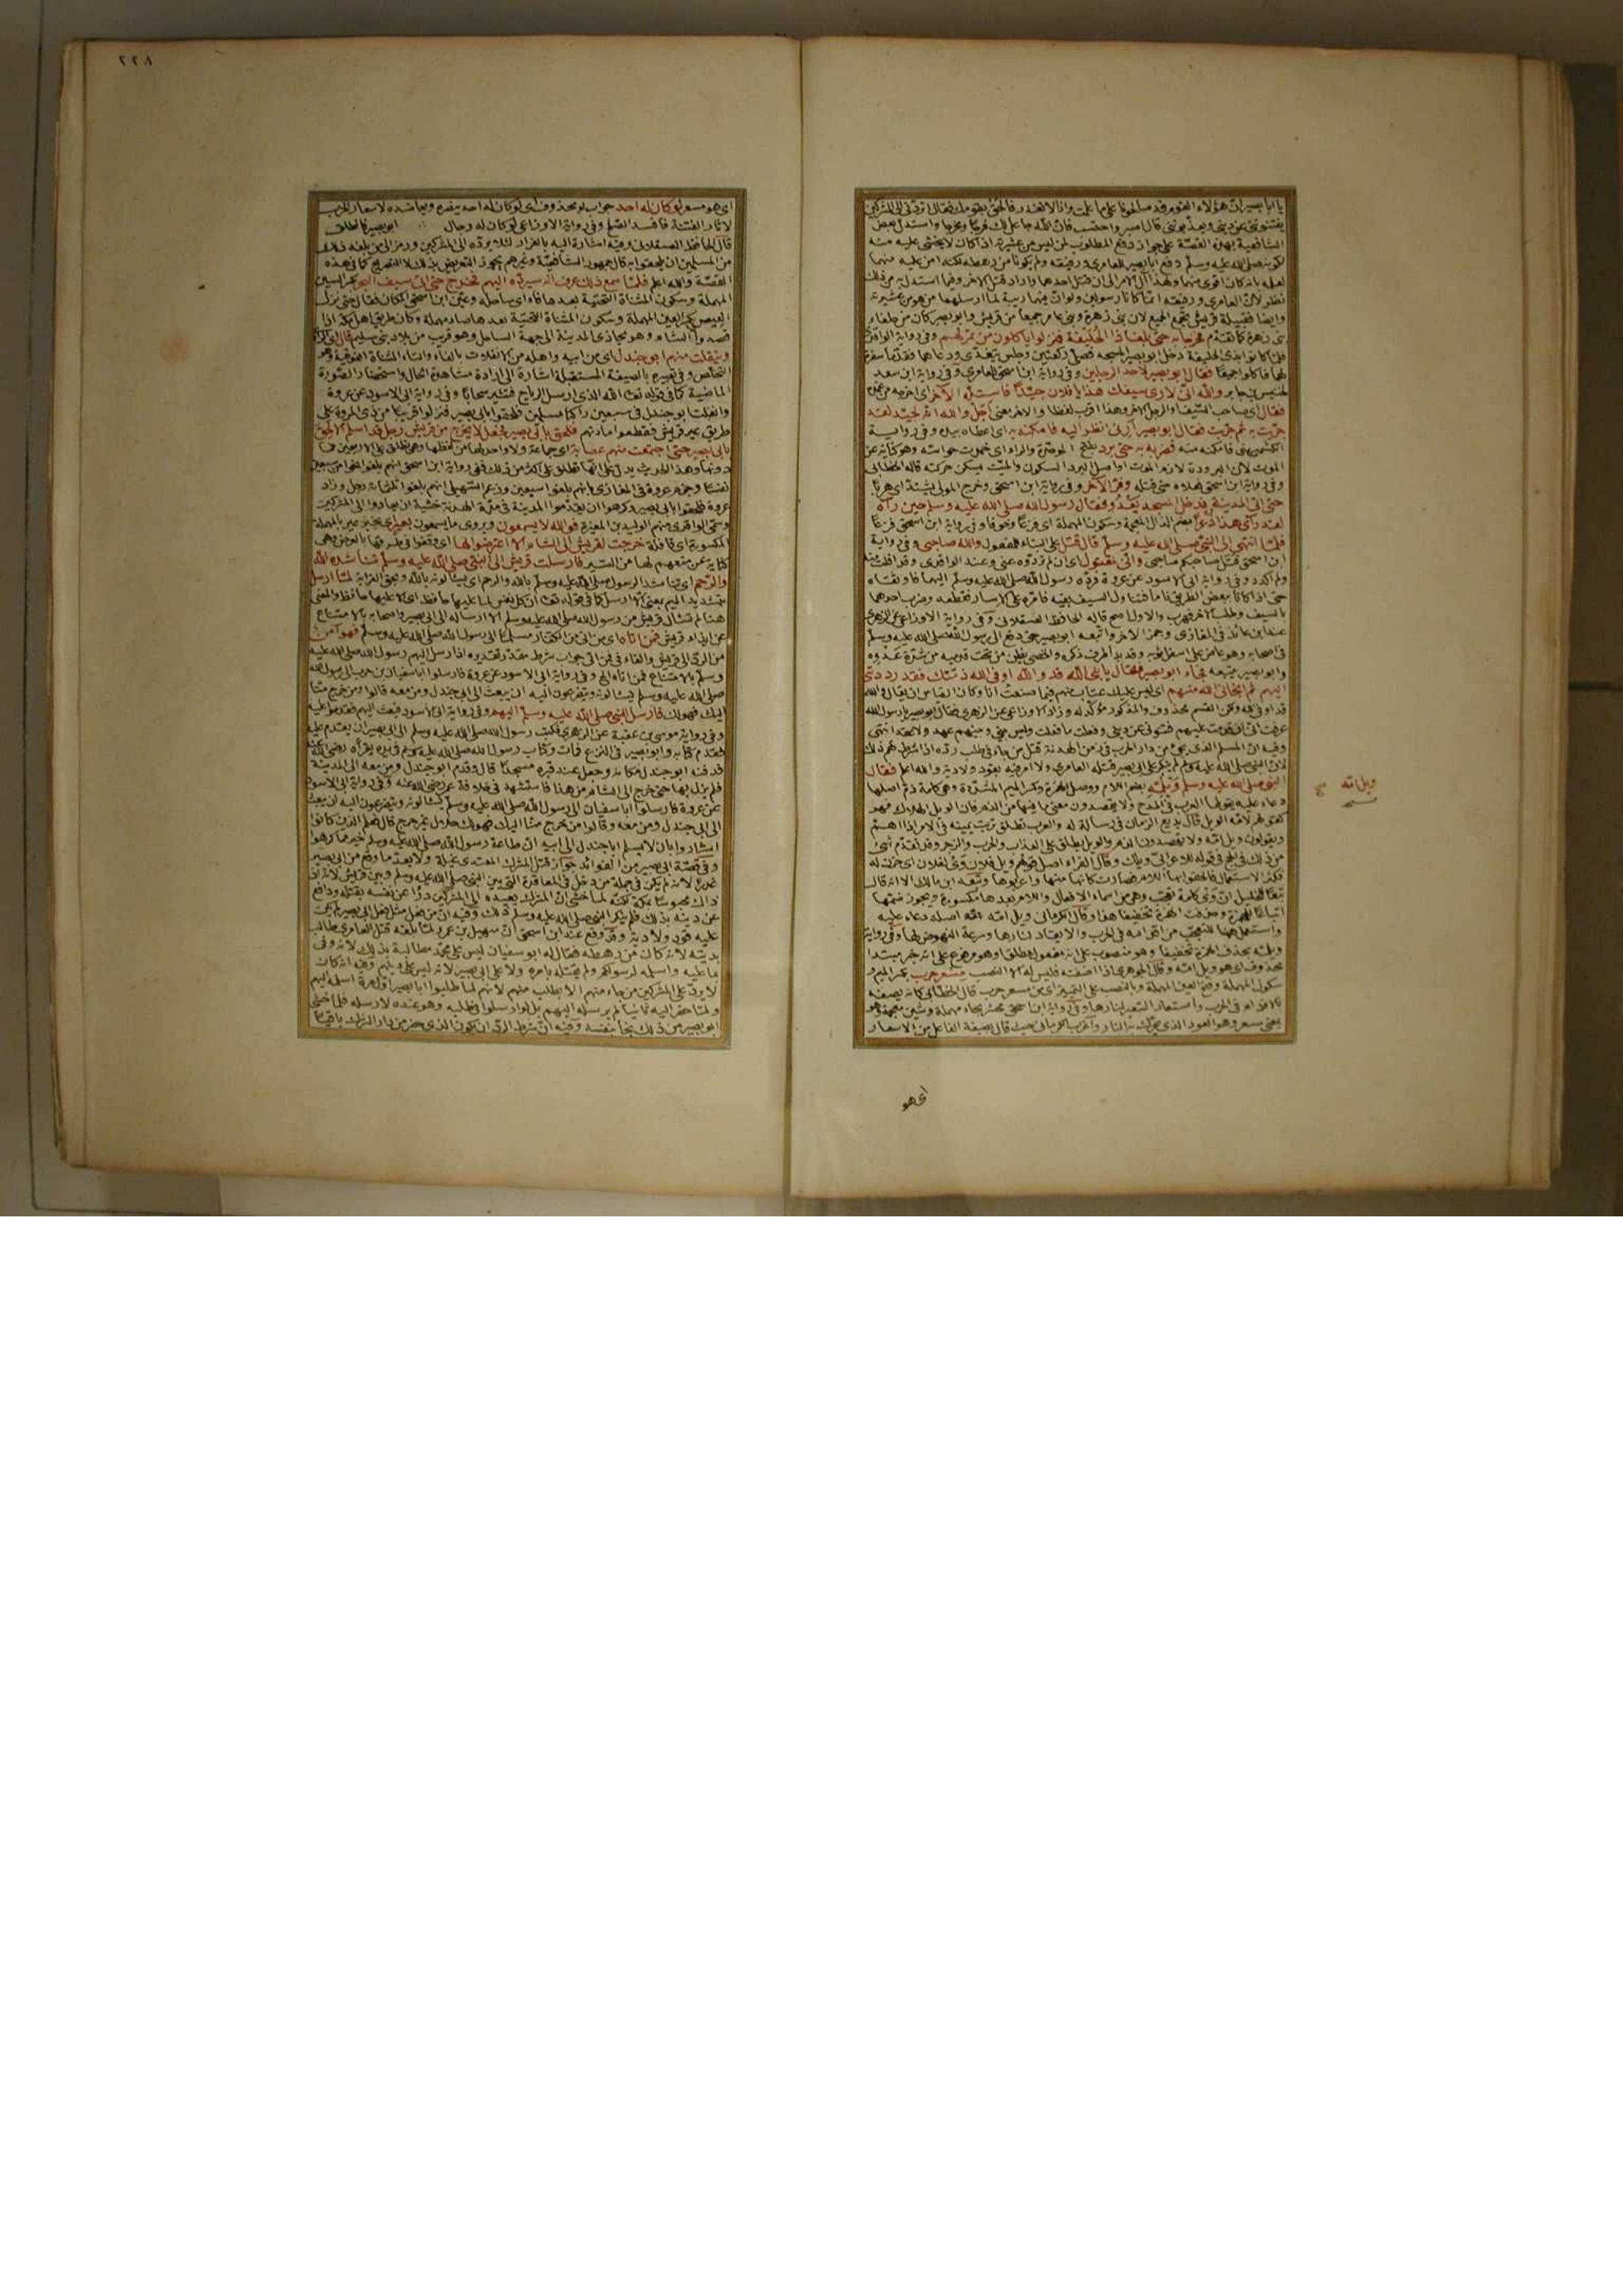 يا ابا بصير ان هؤلاء القوم قد صالحونا على ما علمت وانا لا نغدر فالحق بقومك فقال اتردني الى المشركين
يفتنونني عن ديني ويعذبونني قال اصبر واحتسب فان الله جاعل لك فرجا ومخرجا واستدل بعض
الشافعية بهذه القصة على جواز دفع المطلوب لمن ليس من عشيرته اذا كان لا يخشى عليه منه
لكونه صلى الله عليه وسلم دفع ابا بصير للعامري ورفيقه ولم يكونا من رهطه لكنه امن عليه منهما
لعلمه بانه كان اقوى منهما ولهذا آل الامر الى ان قتل احدهما واراد قتل الآخر وفيما استدل به من ذلك
نظر لان العامري ورفيقه انما كانا رسولين ولو ان فيهما ريبة لما ارسلهما من هو من عشيرته
وايضا فقبيلة قريش تجمع الجميع لان بني زهرة وبني عامر جميعا من قريش وابو بصير كان من حلفاء
بني زهرة كما تقدم فخرجا به حتى بلغا ذا الحليفة فنزلوا ياكلون من تمر لهم وفي رواية الواقدي
فلما كانوا بذي الحليفة دخل ابو بصير المسجد فصلى ركعتين وجلس يتغدى ودعاهما فقدما سفرة
لهما فاكلوا جميعا فقال ابو بصير لاحد الرجلين وفي رواية ابن اسحق للعامري وفي رواية ابن سعد
لخنيس بن جابر والله اني لارى سيفك هذا يا فلان جيدا فاستله الآخر اي اخرجه من غمده
فقال اي صاحب السيف اجل والله انه لجيد لقد
جربت به ثم جربت فقال ابو بصير ارني انظر اليه فامكنه به اي اعطاه بيده وفي رواية
الكشميهني فامكنه منه فضربه به حتى برد بفتح الموحدة والراء اي خمدت حواسه وهو كناية عن
الموت لان البرودة لازم الموت اواصل البرد السكون والميت يسكن حركته قاله الخطابي
وفي رواية ابن اسحق فعلاه حتى قتله وفر الآخر وفي رواية ابن اسحق وخرج المولى يشتد اي هربا
حتى اتى المدينة فدخل المسجد يعدو فقال رسول الله صلى الله عليه وسلم حين رآه
لقد رأى هذا ذعرا بضم الذال المعجمة وسكون المهملة اي فزعا وخوفا وفي رواية ابن اسحق فزعا
فلما انتهى الى النبي صلى الله عليه وسلم قال قتل على البناء للمفعول والله صاحبي وفي رواية
ابن اسحق قتل صاحبكم صاحبي واني لمقتول اي ان لم تردوه عني وعند الواقدي وقد افلت منه
ولم اكد وفي رواية ابي الاسود عن عروة فرده رسول الله صلى الله عليه وسلم اليهما فاوثقاه
حتى اذا كانا ببعض الطريق ناما فتناول السيف بفيه فامره على الاسار فقطعه وضرب احدهما
بالسيف وطلب الآخر فهرب والاول اصح قاله الحافظ العسقلاني وفي رواية الاوزاعي عن الزهري
عند ابن عائذ في المغازي وجمز الآخر واتبعه ابو بصير حتى دفع الى رسول الله صلى الله عليه وسلم
في اصحابه وهو عاض على اسفل ثوبه وقد بدا طرف ذكره والحصى يطير من تحت قدميه من شدة عدوه
وابو بصير يتبعه فجاء ابو بصير فقال يا نبي الله قد والله اوفى الله ذمتك فقد رددتني
اليهم ثم انجاني الله منهم اي ليس عليك عتاب منهم فيما صنعت انا وكان القياس ان يقال والله
قد اوفى الله ولكن القسم محذوف والمذكور مؤكد له وزاد الاوزاعي عن الزهري فقال ابو بصير يا رسول الله
عرفت اني ان قدمت عليهم فتنوني عن ديني ففعلت ما فعلت وليس بيني وبينهم عهد ولا عقد انتهى
وفيه ان المسلم الذي يجئ من دار الحرب في زمن الهدنة قتل من جاء في طلب رده اذا شرط لهم ذلك
لان النبي صلى الله عليه وسلم لم ينكر على ابي بصير قتله العامري ولا امر فيه بقود ولا دية والله اعلم فقال
النبي صلى الله عليه وسلم ويلمه بضم اللام ووصل الهمزة وكسر الميم المشددة وهي كلمة ذم اصلها
دعاء عليه يقولها العرب في المدح ولا يقصدون معنى ما فيها من الذم فان الويل الهلاك فهو
كقولهم لامه الويل قال بديع الزمان في رسالة له والعرب تطلق تربت يمينه في الامر اذا اهم
ويقولون ويل امه ولا يقصدون الذم والويل يطلق على العذاب والحرب والزجر وقد تقدم شئ
من ذلك في الحج في قوله للاعرابي ويلك وقال الفراء اصل قولهم ويل فلان وي لفلان اي حزن له
فكثر الاستعمال فالحقوا بها اللام فصارت كانها منها واعربوها وتبعه ابن مالك الا انه قال
تبعا للخليل ان وي كلمة تعجب وهي من اسماء الافعال واللام بعدها مكسورة ويجوز ضمها
اتباعا للهمزة وحذفت الهمزة تخفيفا هذا وقال الكرماني ويل امه اصله دعاء عليه
واستعمل ههنا للتعجب من اقدامه في الحرب والايقاد لنارها وسرعة النهوض لها وفي رواية
ويلمه بحذف الهمزة تخفيفا وهو منصوب على انه مفعول مطلق او هو مرفوع على انه خبر مبتدا
محذوف اي هو ويل امه وقال الجوهري اذا اضفته فليس له الا النصب مسعر حرب بكسر الميم و
سكون المهملة وفتح العين المهملة وبالنصب على التمييز اي من مسعر حرب قال الخطابي كانه يصفه
بالاقدام في الحرب والتسعير لنارها وفي رواية ابن اسحق محش بحاء مهملة وشين معجمة وهو
بمعنى مسعر وهو العود الذي يحرك به النار واغرب الكرماني حيث قال بصيغة الفاعل من الاسعار
ويل امه
اي هو
٢٢٨
اي هو مسعر لو كان له احد جواب لو محذوف اي لو كان له احد ينصره ويعاضده لاسعار الحرب
لاثار الفتنة فافسد الصلح وفي رواية الاوزاعي لو كان له رجال ابو بصير فانطلق
قال الحافظ العسقلاني وفيه اشارة اليه بالفرار لئلا يرده الى المشركين ورمز الى من بلغه ذلك
من المسلمين ان يلحقوا به قال جمهور الشافعية وغيرهم يجوز التعريض بذلك لا التصريح كما في هذه
القصة والله اعلم فلما سمع ذلك عرف انه سيرده اليهم فخرج حتى اتى سيف البحر بكسر السين
المهملة وسكون المثناة التحتية بعدها فاء اي ساحله وعين ابن اسحق المكان فقال حتى نزل
العيص بكسر العين المهملة وسكون المثناة التحتية بعدها صاد مهملة وكان طريق اهل مكة اذا
قصدوا الشام وهو يحاذي المدينة الى جهة الساحل وهو قريب من بلاد بني سليم قال
وينفلت منهم ابو جندل اي من ابيه واهله من الانفلات بالفاء والتاء المثناة الفوقية وهو
التخلص وفي تعبيره بالصيغة المستقبلة اشارة الى ارادة مشاهدة الحال واستحضار الصورة
الماضية كما في قوله تعالى الله الذي ارسل الرياح فتثير سحابا وفي رواية ابي الاسود عن عروة
وانفلت ابو جندل في سبعين راكبا مسلمين فلحقوا بابي بصير فنزلوا قريبا من ذي المروة على
طريق عير قريش فقطعوا مادتهم فلحق بابي بصير فجعل لا يخرج من قريش رجل قد اسلم الا لحق
بابي بصير حتى اجتمعت منهم عصابة اي جماعة ولا واحد لها من لفظها وهي تطلق على الاربعين فما
دونها وهذا الحديث يدل على انها تطلق على اكثر من ذلك ففي رواية ابن اسحق انهم بلغوا نحوا من سبعين
نفسا وجزم عروة في المغازي بانهم بلغوا سبعين وزعم السهيلي انهم بلغوا ثلثمائة رجل وزاد
عروة فلحقوا بابي بصير وكرهوا ان يقدموا المدينة في مدة الهدنة خشية ان يعادوا الى المشركين
وسمى الواقدي منهم الوليد بن المغيرة فوالله لا يسمعون ويروى ما يسمعون بعير اي بخبر عير بالمهملة
المكسورة اي قافلة خرجت لقريش الى الشام الا اعترضوا لها اي وقفوا في طريقها بالعرض وهي
كناية عن منعهم لها من السير فارسلت قريش الى النبي صلى الله عليه وسلم تناشده الله
والرحم اي تناشد الرسول صلى الله عليه وسلم بالله والرحم اي يسألونه بالله وبحق القرابة لما ارسل
بتشديد الميم بمعنى الا ارسل كما في قوله تعالى ان كل نفس لما عليها حافظ اي الا عليها حافظ والمعنى
هنا لم تسأل قريش من رسول الله صلى الله عليه وسلم الا ارساله الى ابي بصير واصحابه بالامتناع
عن ايذاء قريش فمن اتاه اي من اتى من الكفار مسلما الى رسول الله صلى الله عليه وسلم فهو آمن
من الرد الى قريش والفاء في فمن اتى جواب شرط مقدر تقديره اذا ارسل اليهم رسول الله صلى الله عليه
وسلم بالامتناع فمن اتاه الخ وفي رواية ابي الاسود عن عروة فارسلوا ابا سفيان بن حرب الى رسول الله
صلى الله عليه وسلم يسألونه ويتضرعون اليه ان يبعث الى ابي جندل ومن معه قالوا ومن خرج منا
اليك فهو لك فارسل النبي صلى الله عليه وسلم اليهم وفي رواية ابي الاسود فبعث اليهم فقدموا عليه
وفي رواية موسى بن عقبة عن الزهري فكتب رسول الله صلى الله عليه وسلم الى ابي بصير ان يقدم عليه
فقدم كتابه وابو بصير في النزع فمات وكتاب رسول الله صلى الله عليه وسلم في يده يقرأه رضي الله عنه
فدفنه ابو جندل مكانه وجعل عند قبره مسجدا قال وقدم ابو جندل ومن معه الى المدينة
فلم يزل بها حتى خرج الى الشام مجاهدا فاستشهد في خلافة عمر رضي الله عنه وفي رواية ابي الاسود
عن عروة فارسلوا ابا سفيان الى رسول الله صلى الله عليه وسلم يسألونه ويتضرعون اليه ان يبعث
الى ابي جندل ومن معه وقالوا من خرج منا اليك فهو لك حلال غير حرج قال فعلم الذين كانوا
اشاروا بان لا يسلم ابا جندل الى ابيه ان طاعة رسول الله صلى الله عليه وسلم خير مما كرهوا
وفي قصة ابي بصير من الفوائد جواز قتل المشرك المعتدي غيلة ولا يعد ما وقع من ابي بصير
غدرا لانه لم يكن في جملة من دخل في المعاقدة التي بين النبي صلى الله عليه وسلم وبين قريش لانه اذ
ذاك محبوسا بمكة لكنه لما خشي ان المشرك يعيده الى المشركين درأ عن نفسه بقتله ودافع
عن دينه بذلك فلم ينكر النبي صلى الله عليه وسلم ذلك وفيه ان من فعل مثل فعل ابي بصير لم يكن
عليه قود ولا دية وقد وقع عند ابن اسحق ان سهيل بن عمرو لما بلغه قتل العامري طالب
بديته لانه كان من رهطه فقال له ابو سفيان ليس على محمد مطالبة بذلك لانه وفى
بما عليه واسلمه لرسولكم ولم يقتله بامره ولا على ابي بصير لانه ليس على دينهم وفيه انه كان
لا يرد على المشركين من جاء منهم الا بطلب منهم لانهم لما طلبوا ابا بصير اول مرة اسلمه اليهم
ولما حضر اليه ثانيا لم يرسله اليهم بل لو ارسلوا في طلبه وهو عنده لارسله فلما خشي
ابو بصير من ذلك نجا بنفسه وفيه ان شرط الرد ان يكون الذي حضر من دار الشرك باقيا